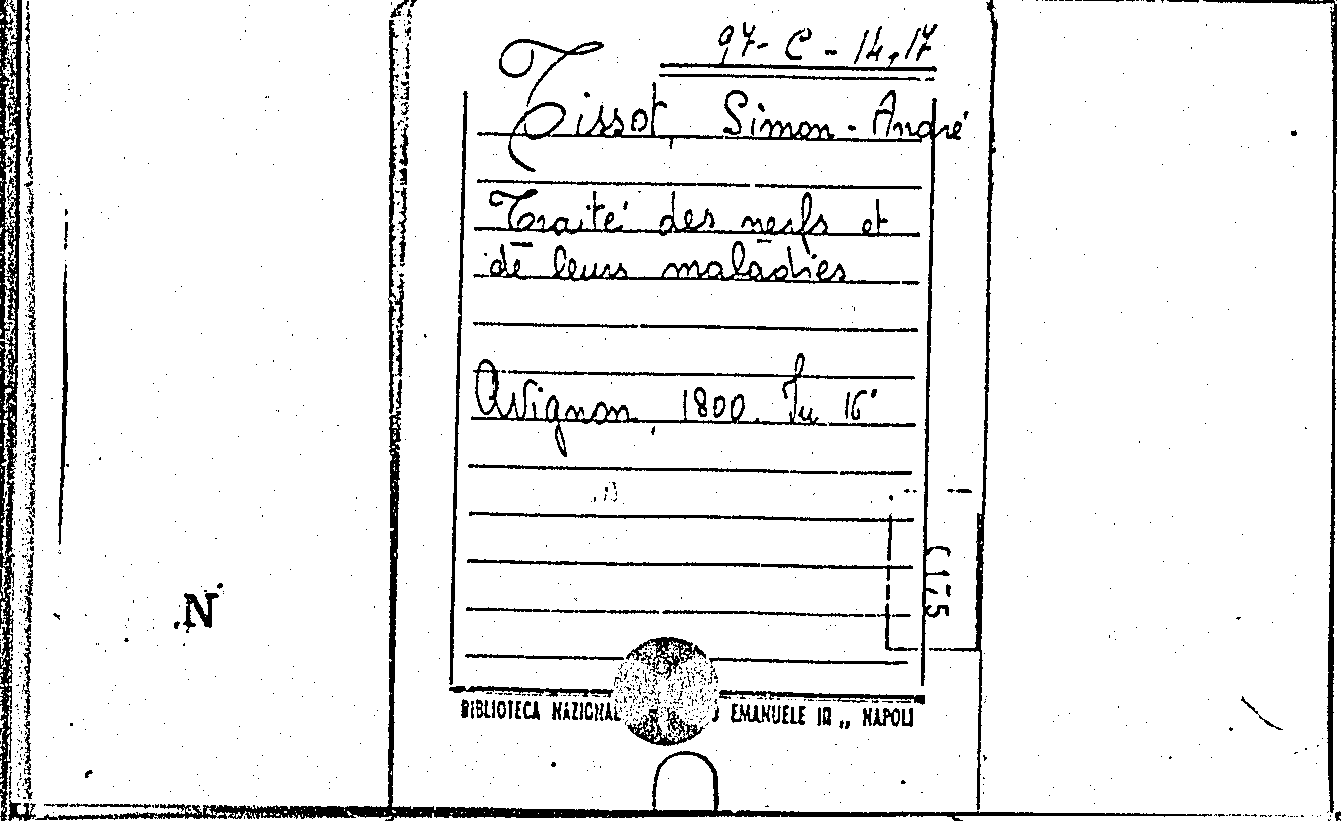 97-C-14,17
Tissot, Simon-André
Traité des nerfs et
de leurs maladies
Avignon, 1800. In 16°
C 17,5
N
BIBLIOTECA EMANUELE III „ NAPOLI